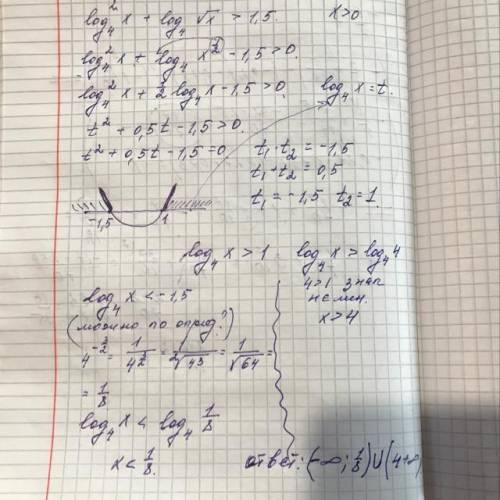 log₄² x + log₄ √x > 1,5.
x>0
log₄² x + log₄ x^(1/2) - 1,5>0.
log₄² x + 1/2 log₄ x - 1,5 > 0.
log₄ x = t.
t² + 0,5t - 1,5 > 0.
t² + 0,5t - 1,5 = 0
t₁ · t₂ = -1,5
t₁ + t₂ = 0,5
t₁ = -1,5 t₂ = 1.
-1,5 1
log₄ x > 1
log₄ x > log₄ 4
4>1 знак
не мен.
x>4
log₄ x < -1,5
(можно по опред?)
4^(-3/2) = 1/4^(3/2) = 1/√4³ = 1/√64 =
= 1/8
log₄ x < log₄ 1/8
x < 1/8.
ответ: (-∞; 1/8) U (4 +∞)